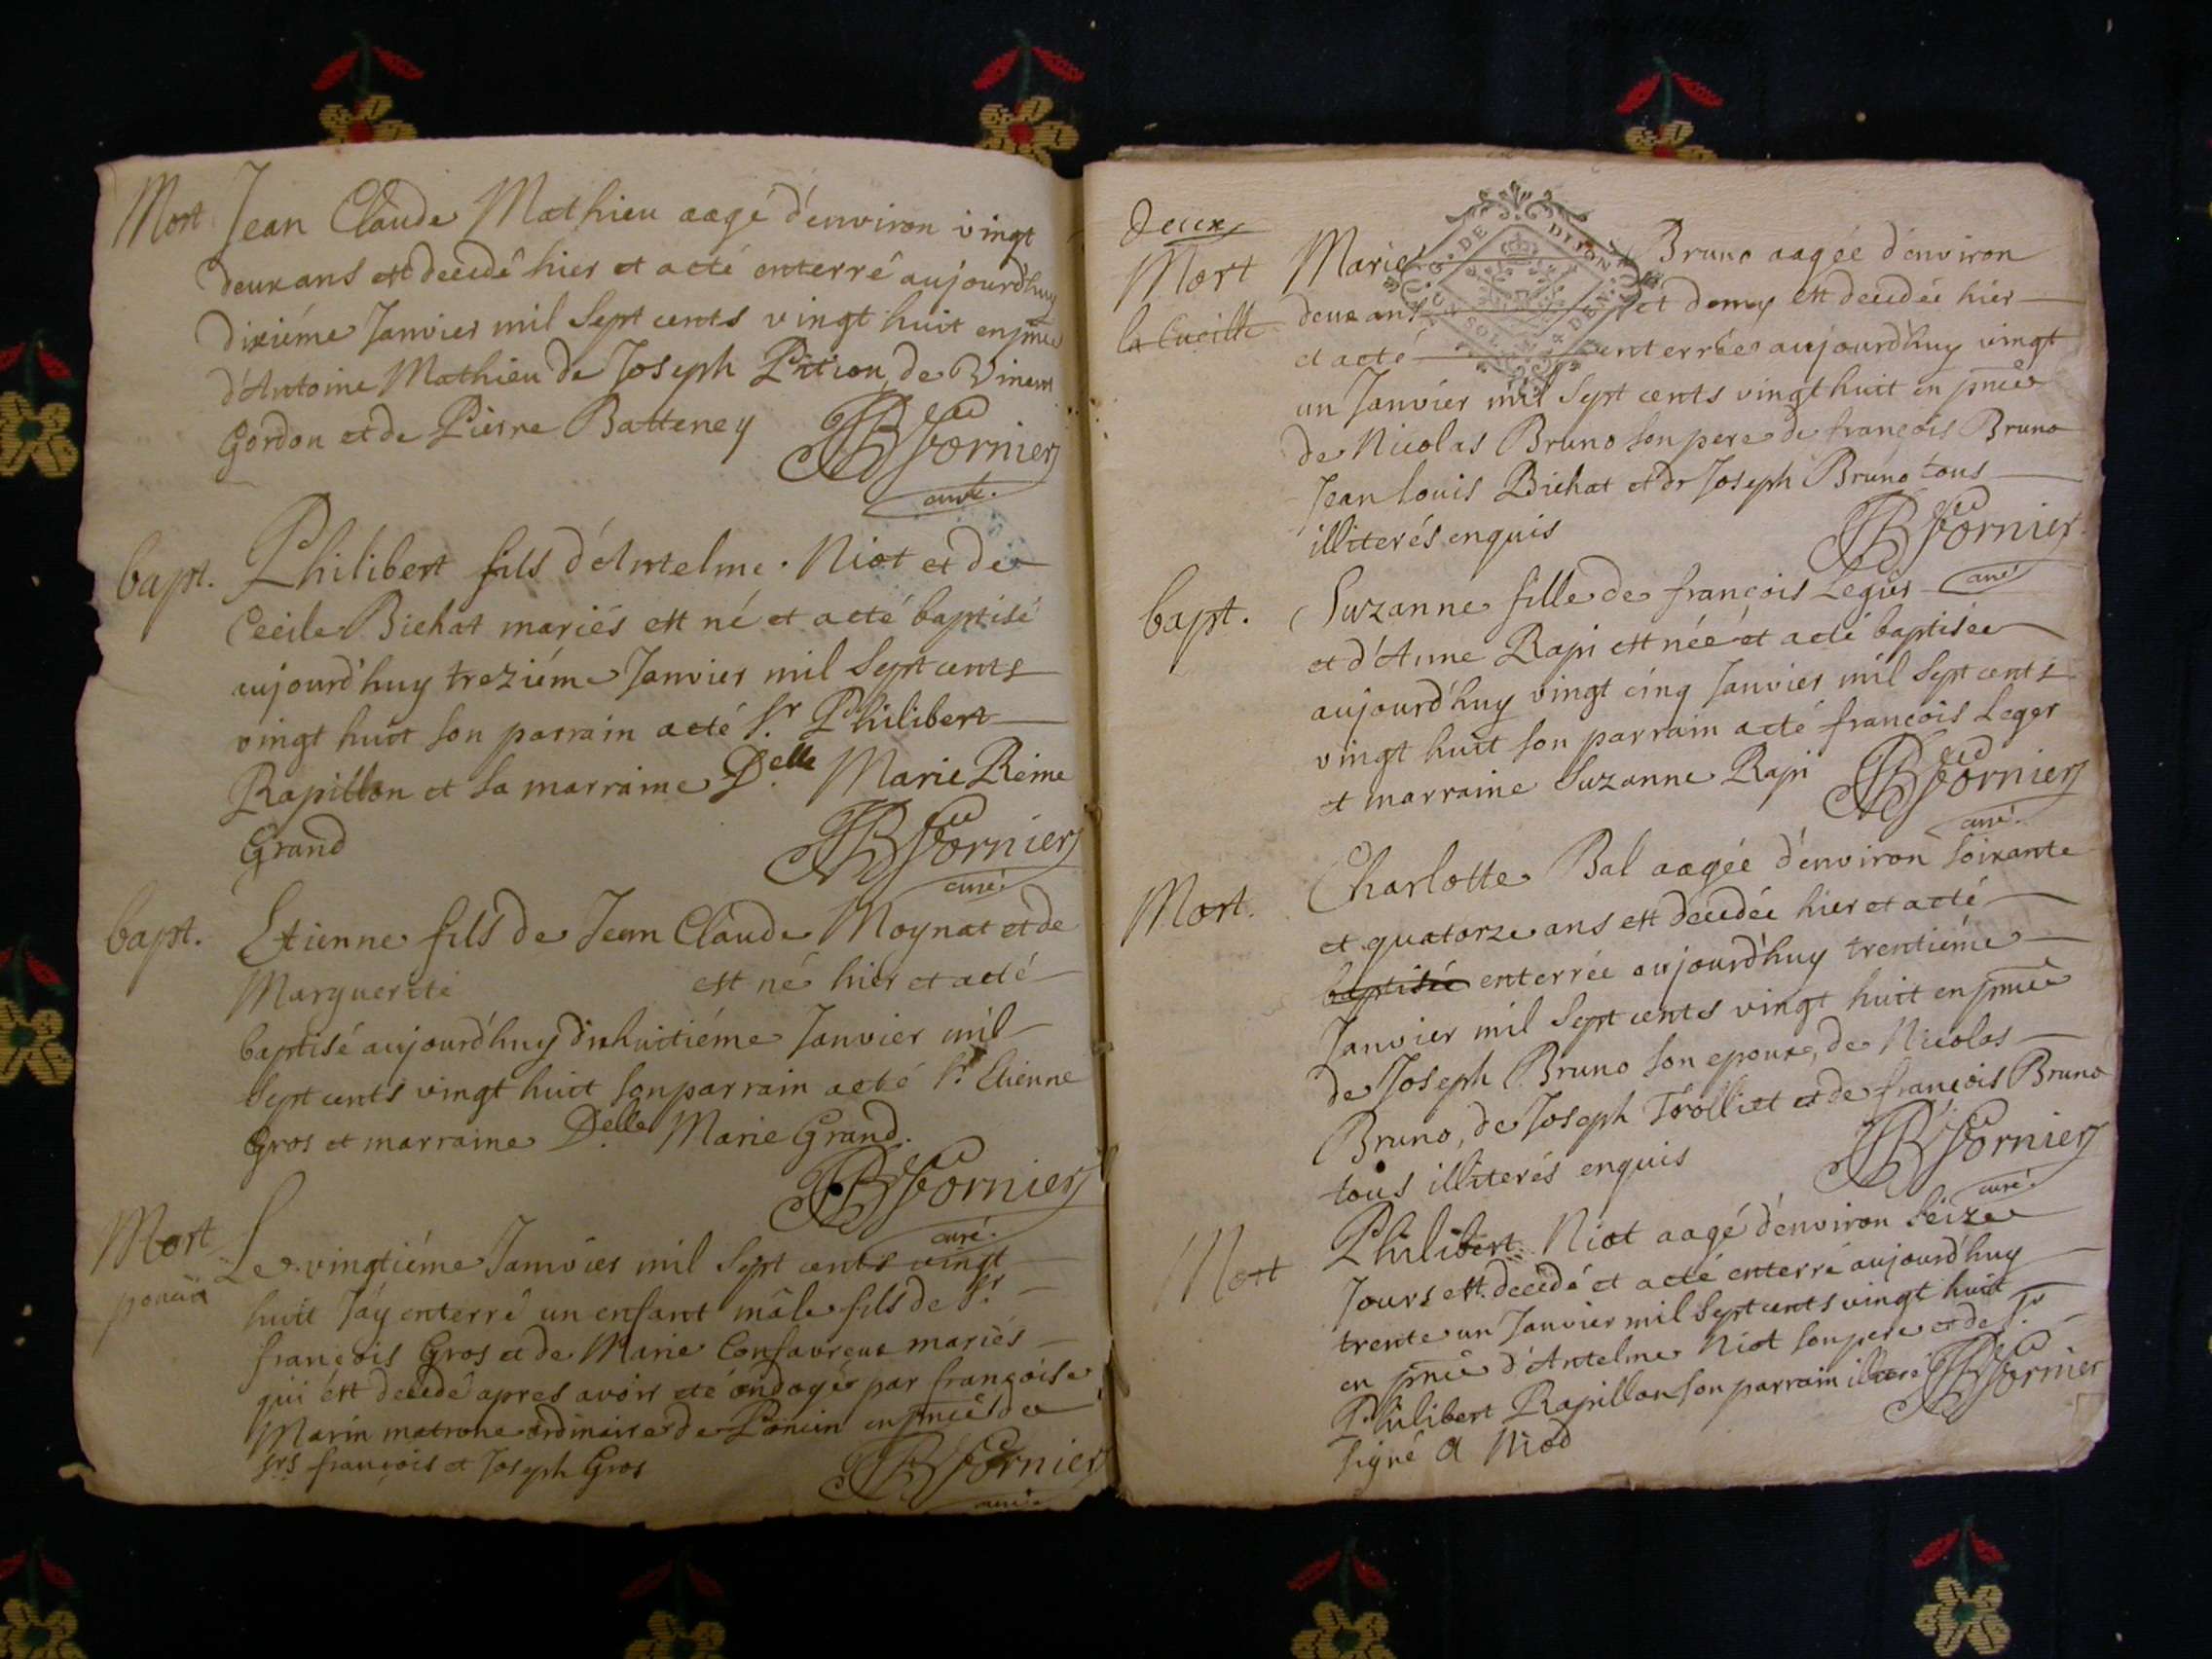 Mort Jean Claude Mathieu aagé d'environ vingt
deux ans est decedé hier et a eté enterré aujourd'huy
dixiéme Janvier mil sept cents vingt huit en pnce
d'Antoine Mathieu de Joseph de Vincent
Gordon et de Pierre Batteney JB Fornier
curé.
bapt. Philibert fils d'Antelme Niot et de
Cecile Bichat mariés est né et a eté baptisé
aujourd'huy treziéme Janvier mil sept cents
vingt huit son parrain a eté Sr. Philibert
Rapillon et sa marraine Delle Marie Reine
Grand JB Fornier
curé.
bapt. Etienne fils de Jean Claude Moynat et de
Marguerite est né hier et a eté
baptisé aujourd'huy dixhuitiéme Janvier mil
sept cents vingt huit son parrain a eté Sr. Etienne
Gros et marraine Delle Marie Grand.
JB Fornier
curé.
Mort Le vingtiéme Janvier mil sept cents vingt
poncin huit J'ay enterré un enfant mâle fils de Sr.
françois Gros et de Marie mariés
qui est decedé apres avoir eté ondoyé par françoise
Marin matrone ordinaire de Poncin en pnce de
Srs françois et Joseph Gros JB Fornier
curé
Deux
Mort Marie Bruno aagée d'environ
la Cueille deux ans et demy est decedée hier
et a eté enterrée aujourd'huy vingt
un Janvier mil sept cents vingt huit en pnce
de Nicolas Bruno son pere de françois Bruno
Jean Louis Bichat et de Joseph Bruno tous
illiterés enquis JB Fornier
curé
GE. DE DIJON
bapt. Suzanne fille de françois Leger
et d'Anne Rapi est née et a eté baptisée
aujourd'huy vingt cinq Janvier mil sept cents
vingt huit son parrain a eté françois Leger
et marraine Suzanne Rapi JB Fornier
curé.
Mort. Charlotte Bal aagée d'environ soixante
et quatorze ans est decedée hier et a eté
baptisée enterrée aujourd'huy trentiéme
Janvier mil sept cents vingt huit en pnce
de Joseph Bruno son epoux, de Nicolas
Bruno, de Joseph Trolliet et de françois Bruno
tous illiterés enquis JB Fornier
curé.
Mort Philibert Niot aagé d'environ seize
Jours est decedé et a eté enterré aujourd'huy
trente un Janvier mil sept cents vingt huit
en pnce d'Antelme Niot son pere et de Sr.
Philibert Rapillon son parrain illiteré JB Fornier
signé a Niod